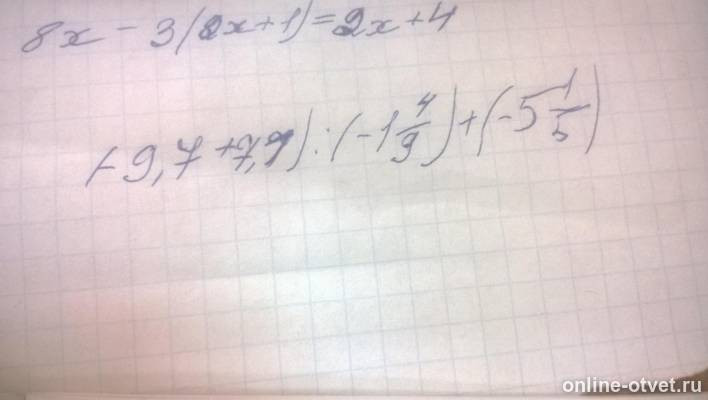 8x - 3(2x+1)=2x+4
(-9,7+7,1):(-1 4/9)+(-5 1/5)
online-otvet.ru